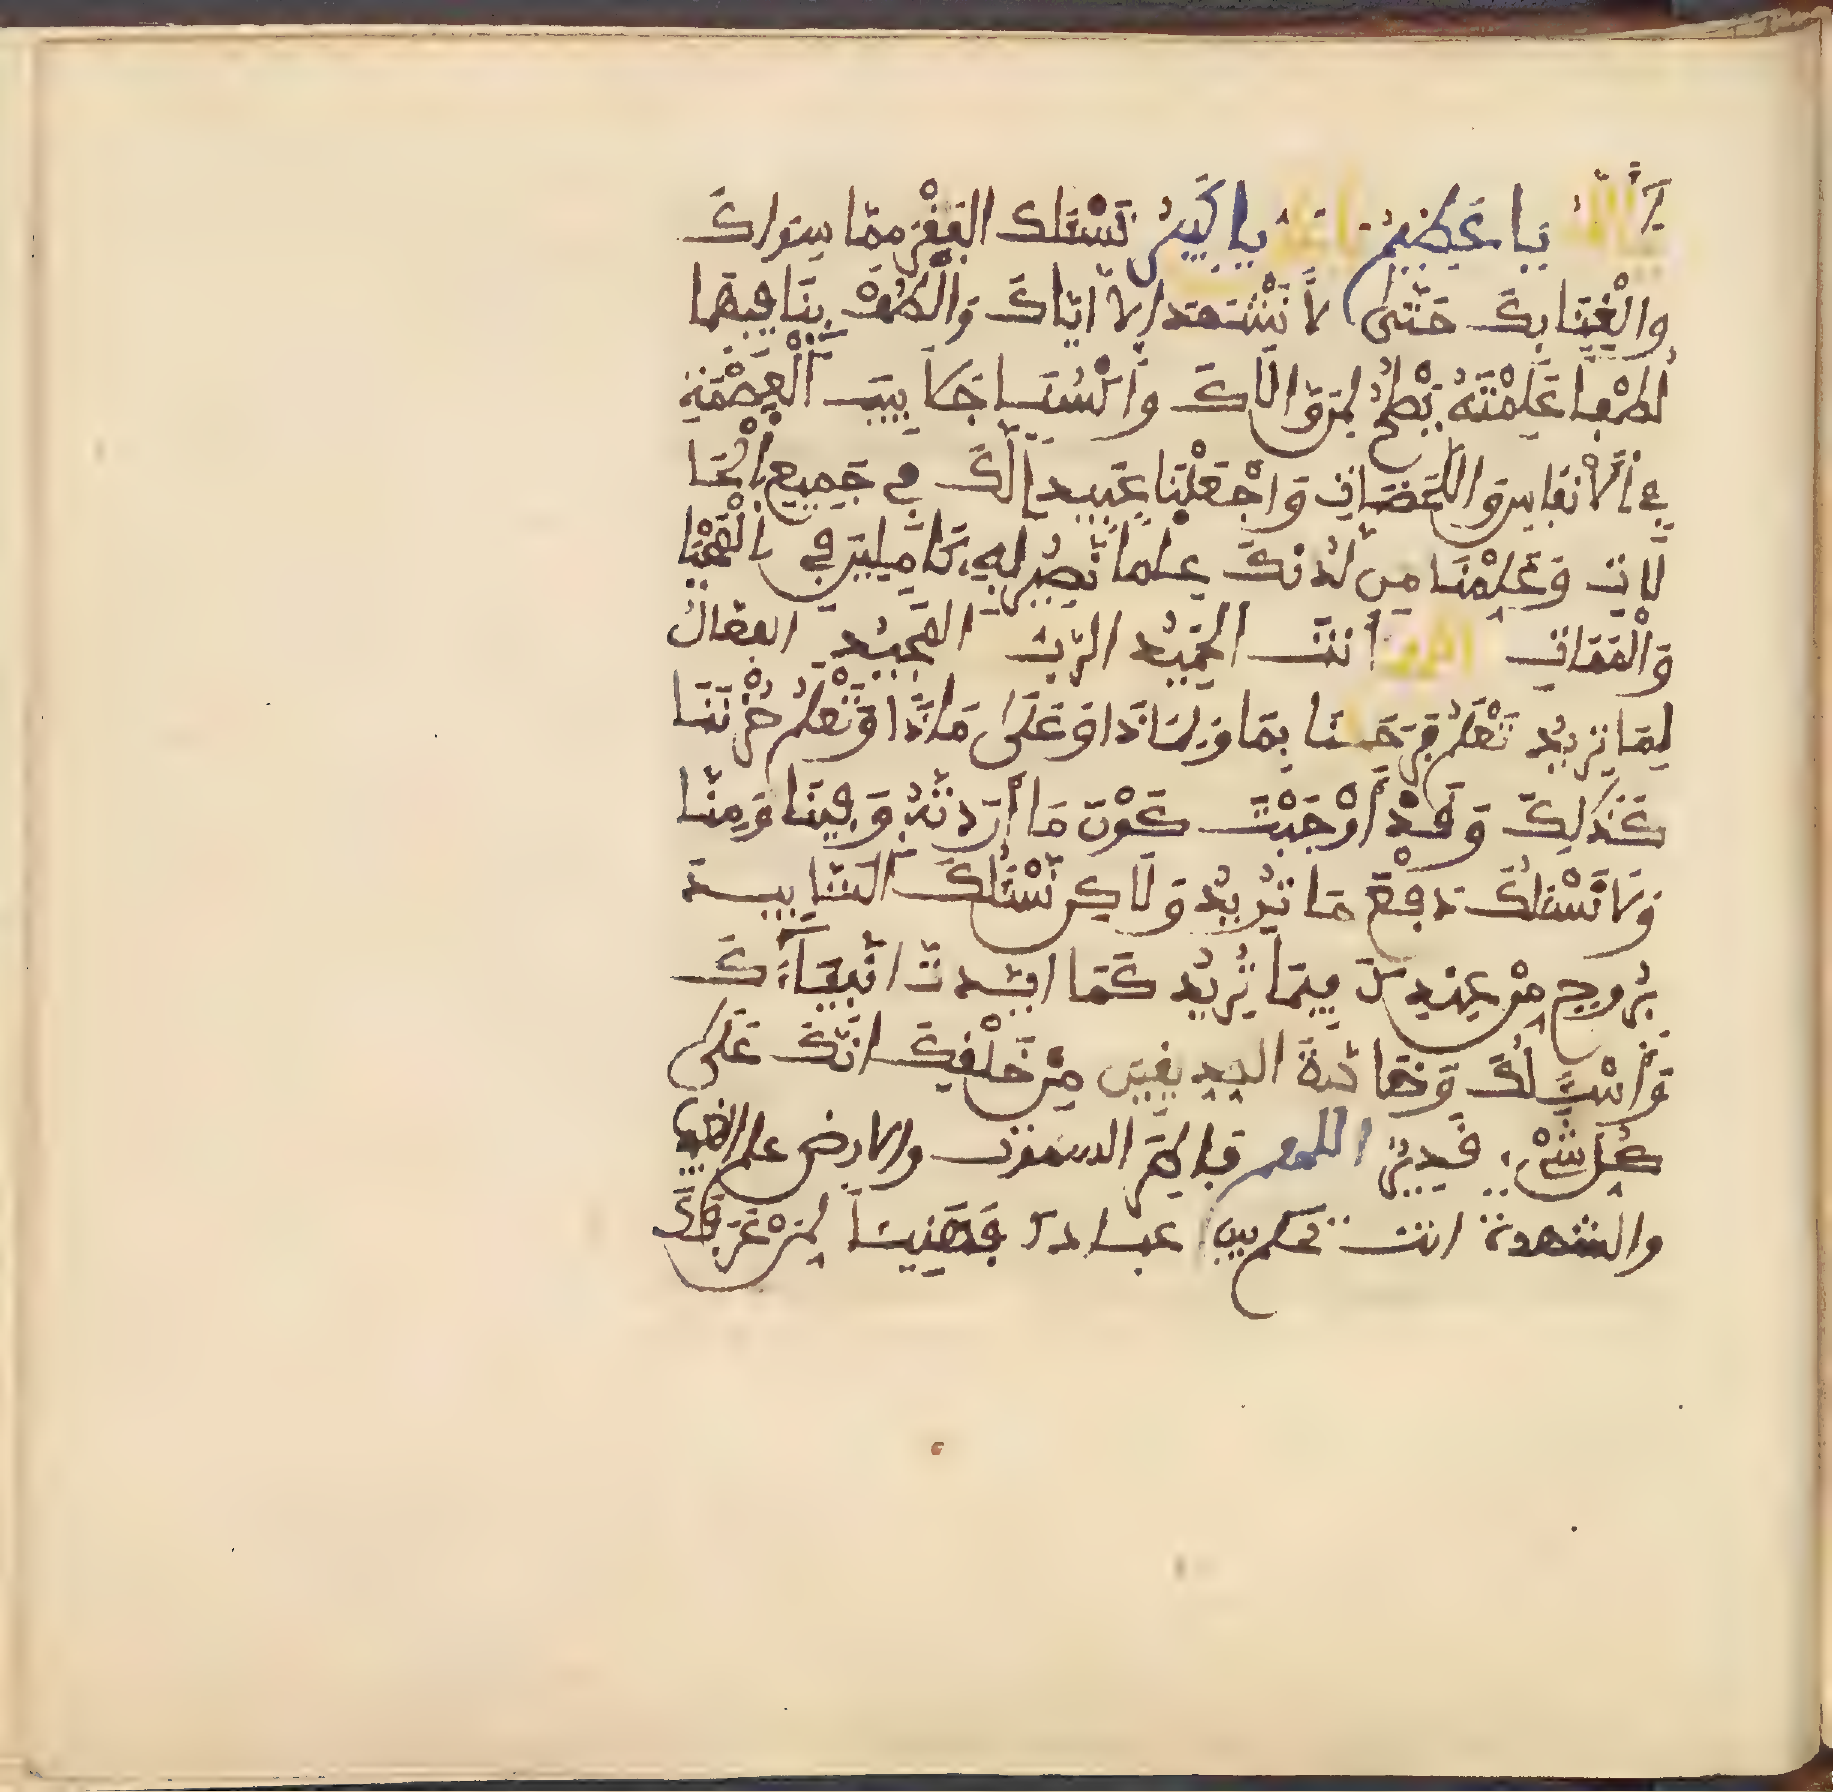 يَا أَللَّهُ يَا عَظِيمُ يَا عَلِيُّ يَا كَبِيرُ نَسْئَلُكَ الْفَقْرَ مِمَّا سِوَاكَ
وَالْغِنَا بِكَ حَتَّى لَا نَشْهَدَ إِلَّا إِيَّاكَ وَالْطُفْ بِنَا فِيهِمَا
لُطْفًا عَلِمْتَهُ يَصْلُحُ لِمَن وَّالَاكَ وَاكْسُنَا جَلَابِيبَ الْعِصْمَةِ
فِي الْأَنْفَاسِ وَاللَّحَضَاتِ وَاجْعَلْنَا عَبِيدًا لَّكَ فِي جَمِيعِ الْحَا
لَاتِ وَعَلِّمْنَا مِن لَّدُنكَ عِلْمًا نَّصِيرُ بِهِ كَامِلِينَ فِي الْمَحْيَا
وَالْمَمَاتِ اللهم أَنتَ الْحَمِيدُ الرَّبُّ الْمَجِيدُ الْفَعَّالُ
لِمَا يُرِيدُ تَعْلَمُ فَرَحَنَا بِمَا وَلِمَاذَا وَعَلَى مَاذَا وَتَعْلَمُ حُزْنَنَا
كَذَلِكَ وَقَدْ أَوْجَبْتَ كَوْنَ مَا أَرَدتَّهُ وَفِينَا وَمِنَّا
وَلَا نَسْئَلُكَ دَفْعَ مَا تُرِيدُ وَلَاكِن نَّسْئَلُكَ التَّايِيدَ
بِرُوحٍ مِّنْ عِندِكَ فِيمَا تُرِيدُ كَمَا أَيَّدتَّ أَنبِيَاءَكَ
وَرُسُلَكَ وَخَاصَّةَ الصِّدِيقِينَ مِنْ خَلْقِكَ إِنَّكَ عَلَى
كُلِّ شَيْءٍ قَدِيرٌ اللهم فاطر السموت والارض علم الغيب
والشهدة انت تحكم بين عبادك فَهَنِيئًا لِّمَنْ عَرَفَكَ